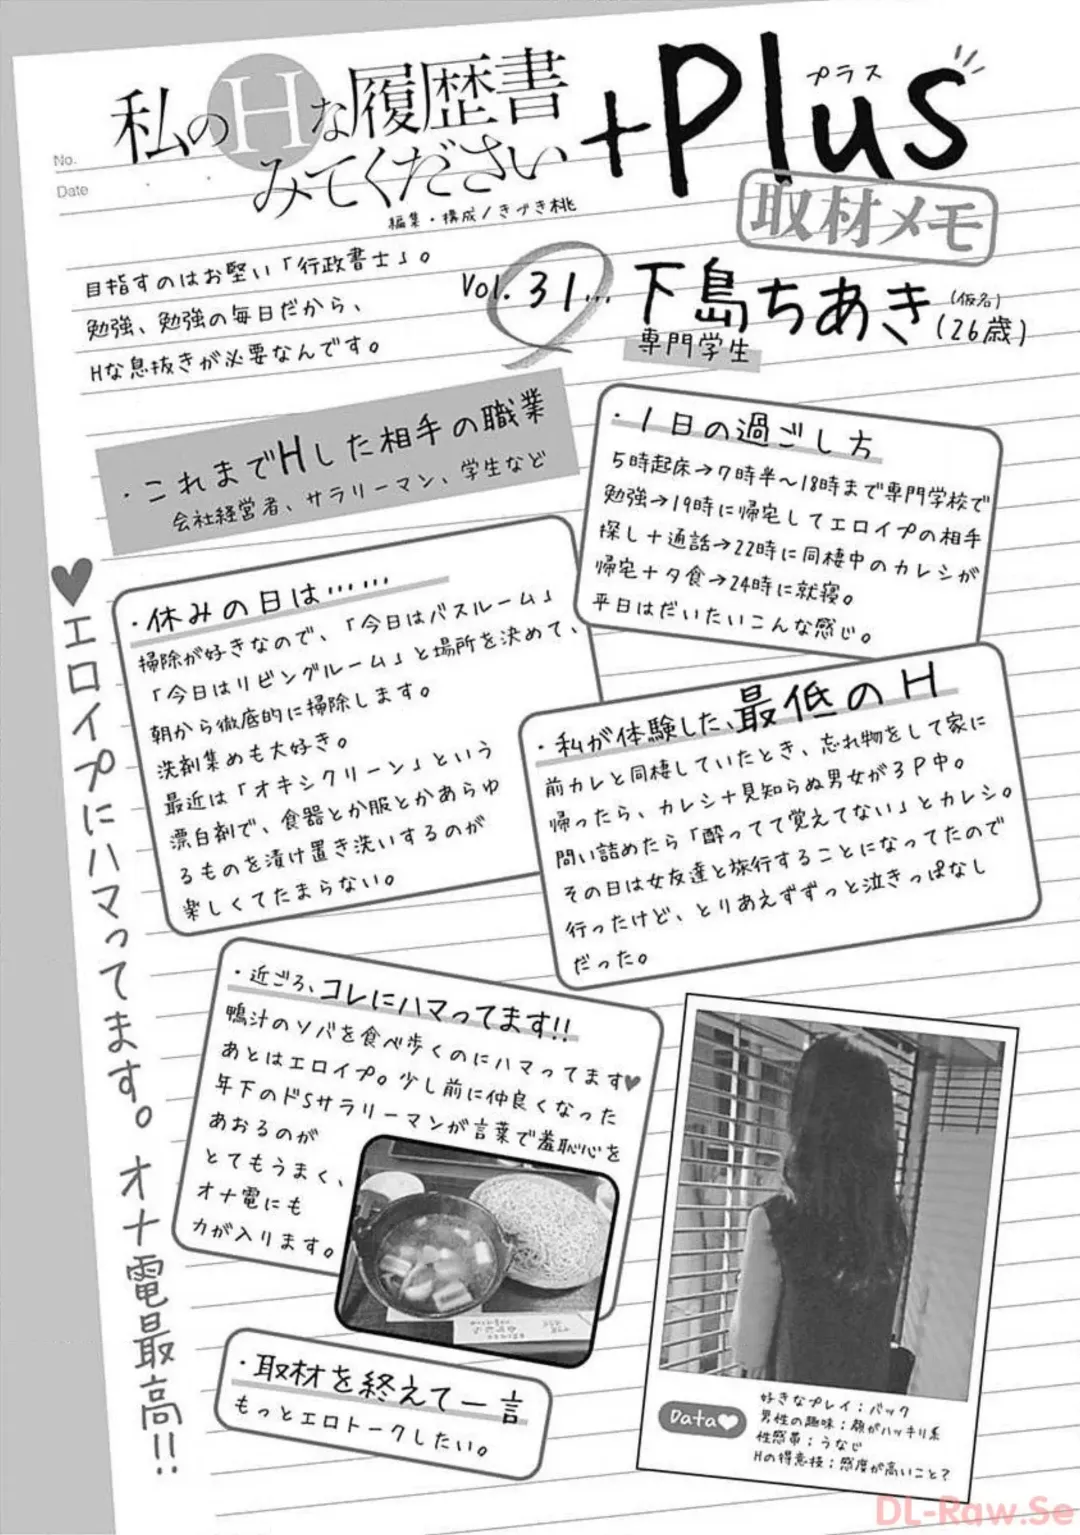 No.
Date
私のHな履歴書
みてください
+Plus
プラス
取材メモ
編集・構成/きづき桃
目指すのはお堅い「行政書士」。
勉強、勉強の毎日だから、
Hな息抜きが必要なんです。
Vol.31… 下島ちあき(仮名)(26歳)
専門学生
・これまでHした相手の職業
会社経営者、サラリーマン、学生など
・1日の過ごし方
5時起床→7時半〜18時まで専門学校で
勉強→19時に帰宅してエロイプの相手
探し+通話→22時に同棲中のカレシが
帰宅+夕食→24時に就寝。
平日はだいたいこんな感じ。
・休みの日は……
掃除が好きなので、「今日はバスルーム」
「今日はリビングルーム」と場所を決めて、
朝から徹底的に掃除します。
洗剤集めも大好き。
最近は「オキシクリーン」という
漂白剤で、食器とか服とかあらゆ
るものを漬け置き洗いするのが
楽しくてたまらない。
・私が体験した、最低のH
前カレと同棲していたとき、忘れ物をして家に
帰ったら、カレシ+見知らぬ男女が3P中。
問い詰めたら「酔ってて覚えてない」とカレシ。
その日は女友達と旅行することになってたので
行ったけど、とりあえずずっと泣きっぱなし
だった。
♥エロイプにハマってます。オナ電最高!!
・近ごろ、コレにハマってます!!
鴨汁のソバを食べ歩くのにハマってます♥
あとはエロイプ。少し前に仲良くなった
年下のドSサラリーマンが言葉で羞恥心を
あおるのが
とてもうまく、
オナ電にも
力が入ります。
・取材を終えて一言
もっとエロトークしたい。
Data♥
好きなプレイ:バック
男性の趣味:顔がハッキリ系
性感帯:うなじ
Hの得意技:感度が高いこと?
DL-Raw.Se